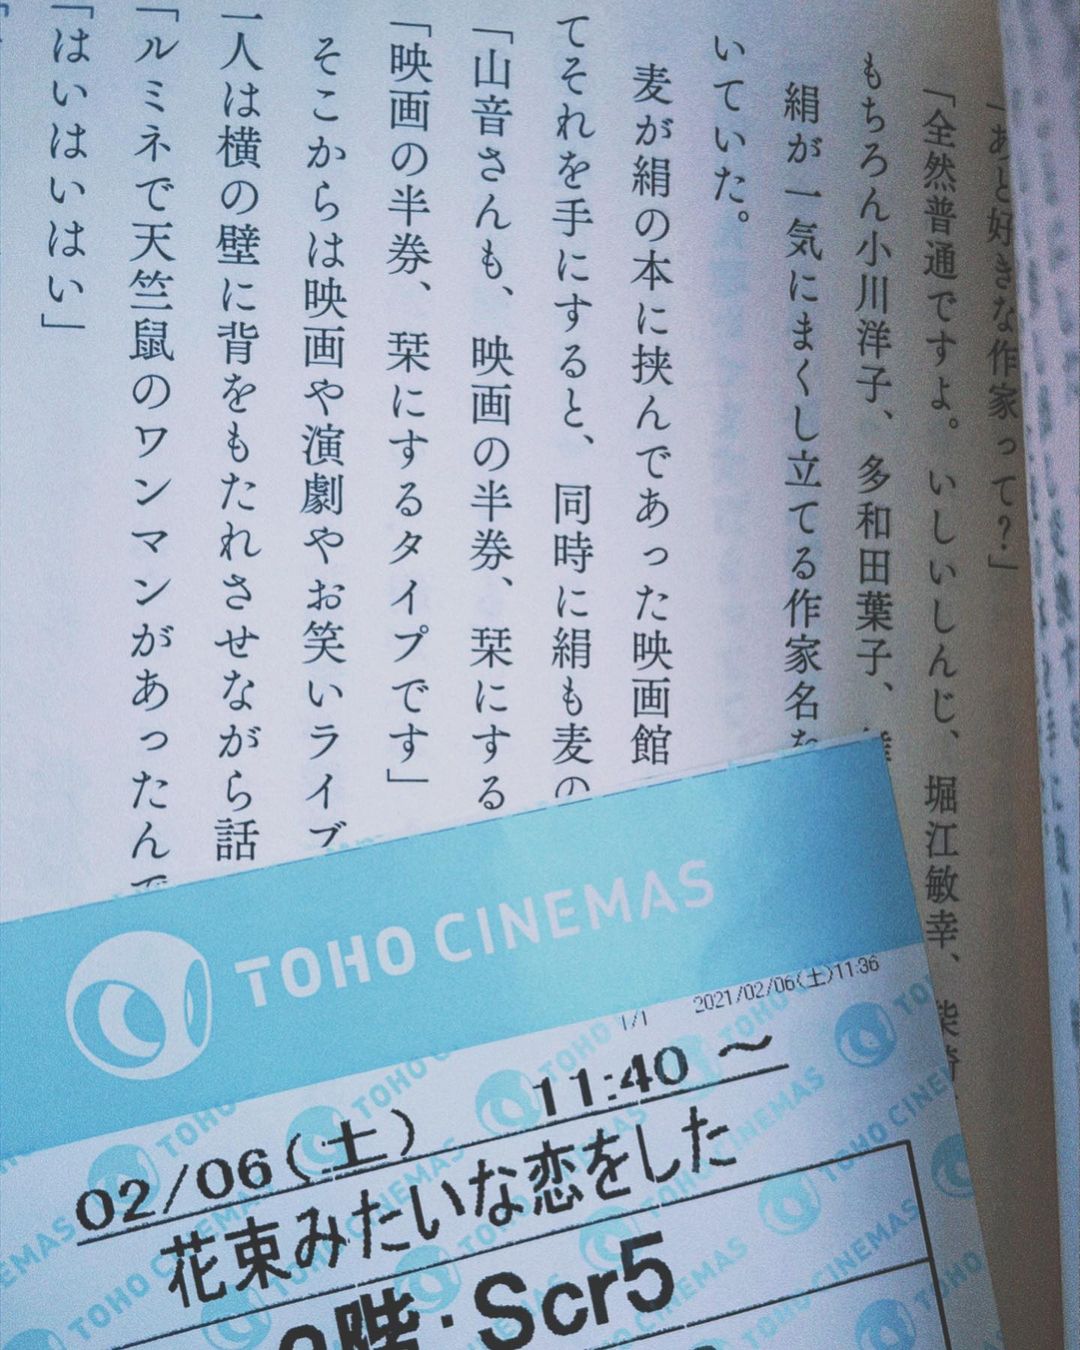 「あと好きな作家って？」
「全然普通ですよ。いしいしんじ、堀江敏幸、柴崎
もちろん小川洋子、多和田葉子、
絹が一気にまくし立てる作家名を
いていた。
麦が絹の本に挟んであった映画館
てそれを手にすると、同時に絹も麦の
「山音さんも、映画の半券、栞にする
「映画の半券、栞にするタイプです」
そこからは映画や演劇やお笑いライブ
一人は横の壁に背をもたれさせながら話
「ルミネで天竺鼠のワンマンがあったんで
「はいはいはい」
TOHO CINEMAS
2021/02/06(土)11:36
1/1
02/06(土) 11:40 〜
花束みたいな恋をした
階・Scr5